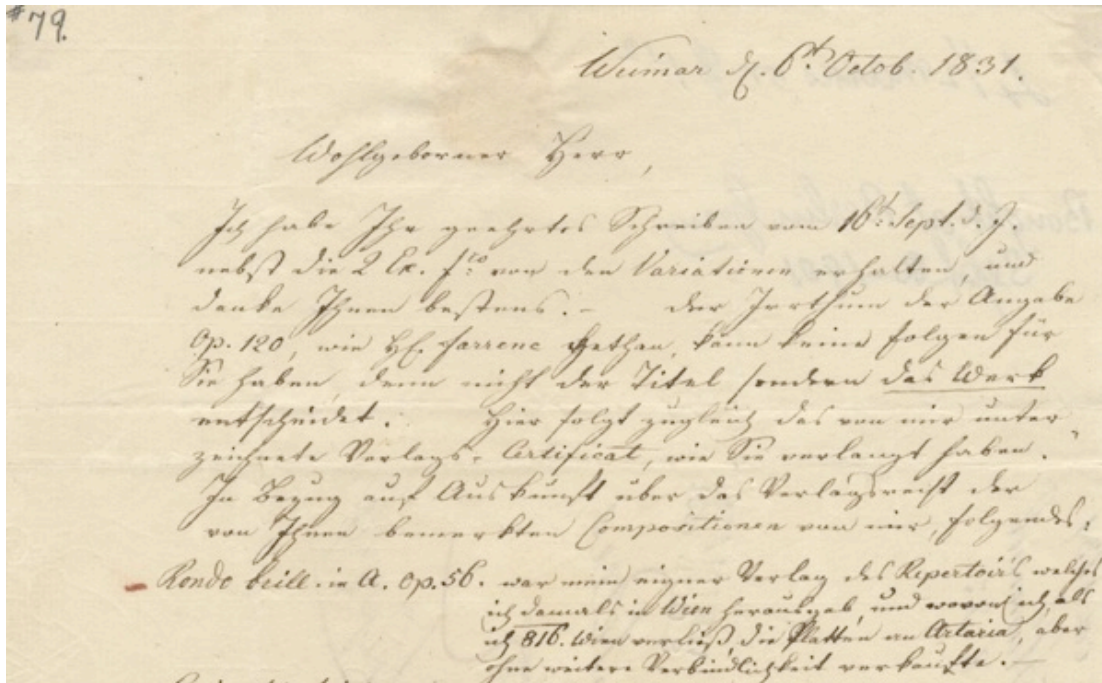 #79.
Weimar d. 6t. Octob. 1831.
Wohlgeborner Herr,
Ich habe Ihr geehrtes Schreiben vom 16t. Sept. d. J.
nebst die 2 Ex. von den Variationen erhalten, und
danke Ihnen bestens. – Der Irrthum der Angabe
Op. 120, wie H. Farrenc gethan, kann keine Folgen für
Sie haben, denn nicht der Titel sondern das Werk
entscheidet. Hier folgt zugleich das von mir unter-
zeichnete Verlags-Certificat, wie Sie verlangt haben.
In Bezug auf Auskunft über das Verlagsrecht der
von Ihnen bemerkten Compositionen von mir, folgendes:
Rondo brill. in A. Op. 56. war mein eigner Verlag des Repertoir's welches
ich damals in Wien herausgab, und wovon ich, als
ich 816. Wien verließ, die Platten an Artaria, aber
ohne weitere Verbindlichkeit verkaufte. –